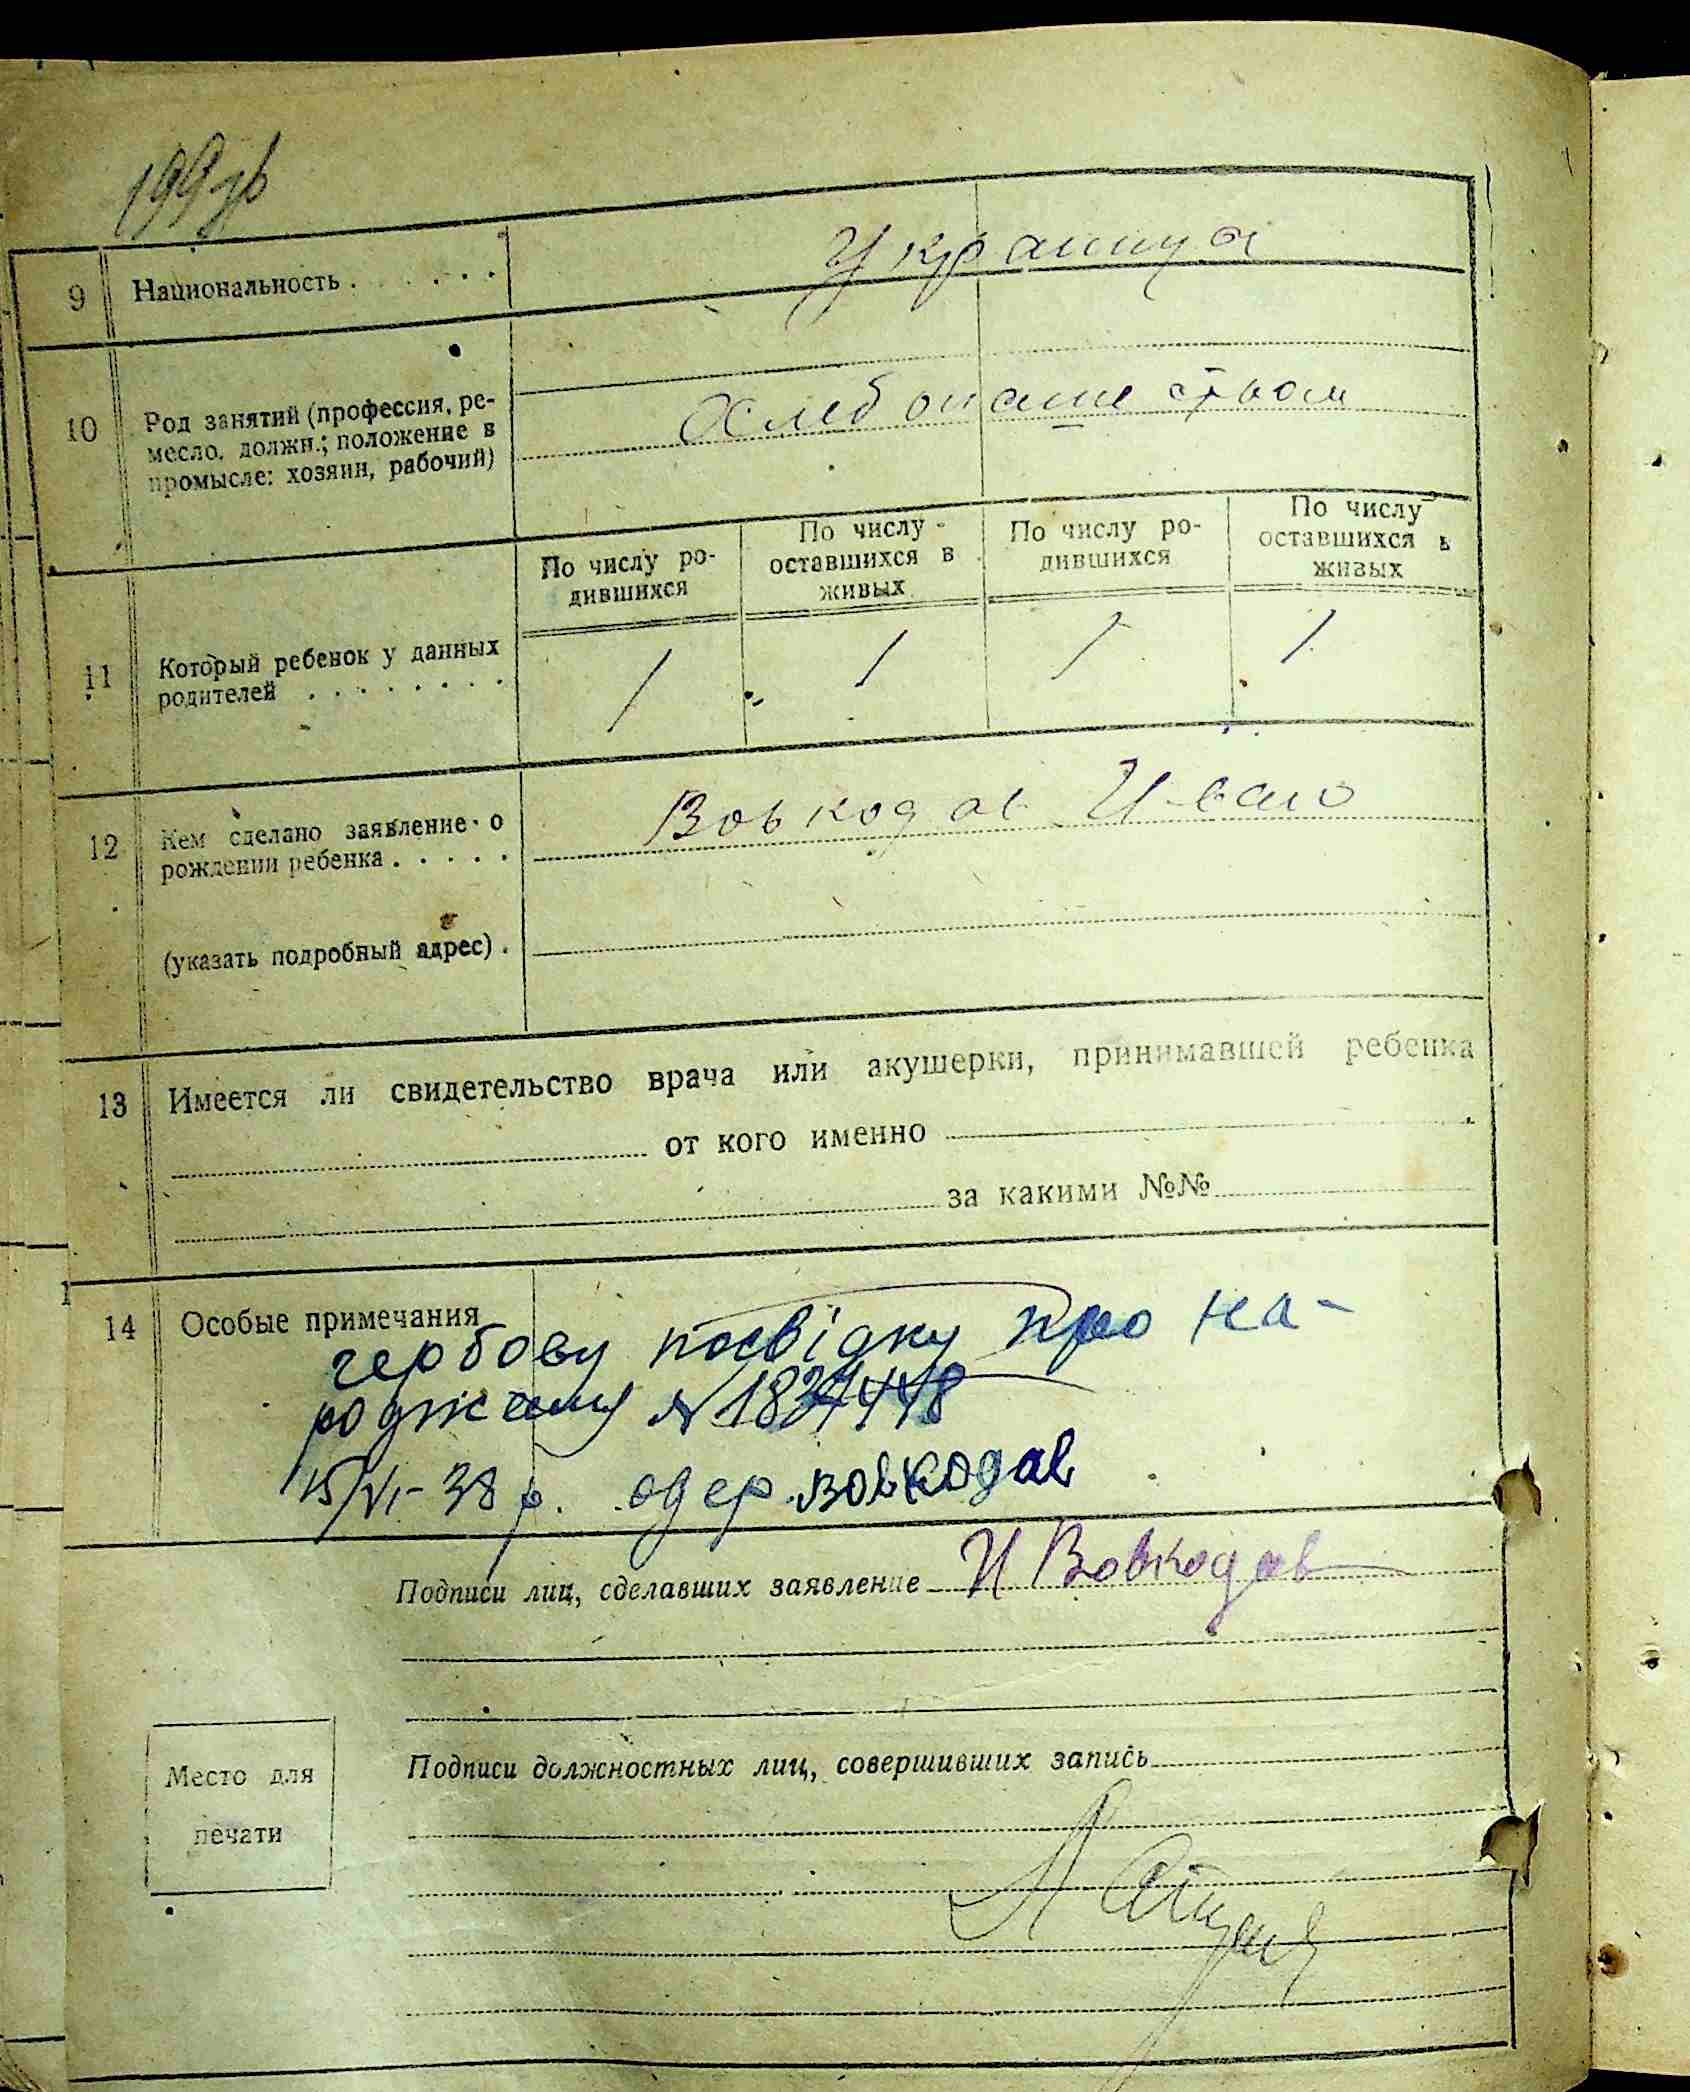 199 зв
9 Национальность . . . . . .
Украинца
10 Род занятий (профессия, ре-
месло, должн.; положение в
промысле: хозяин, рабочий)
Хлебопашеством
По числу ро-
дившихся
По числу
оставшихся в
живых
По числу ро-
дившихся
По числу
оставшихся в
живых
11 Который ребенок у данных
родителей . . . . . . . .
1 1 1 1
12 Кем сделано заявление о
рождении ребенка . . . . .
Вовкодав Иван
(указать подробный адрес) .
13 Имеется ли свидетельство врача или акушерки, принимавшей ребенка
от кого именно
за какими №№
14 Особые примечания
гербову посвідку про на-
родження №
15/VI-38 р. одер. Вовкодав
Подписи лиц, сделавших заявление И Вовкодав
Подписи должностных лиц, совершивших запись
Место для
печати